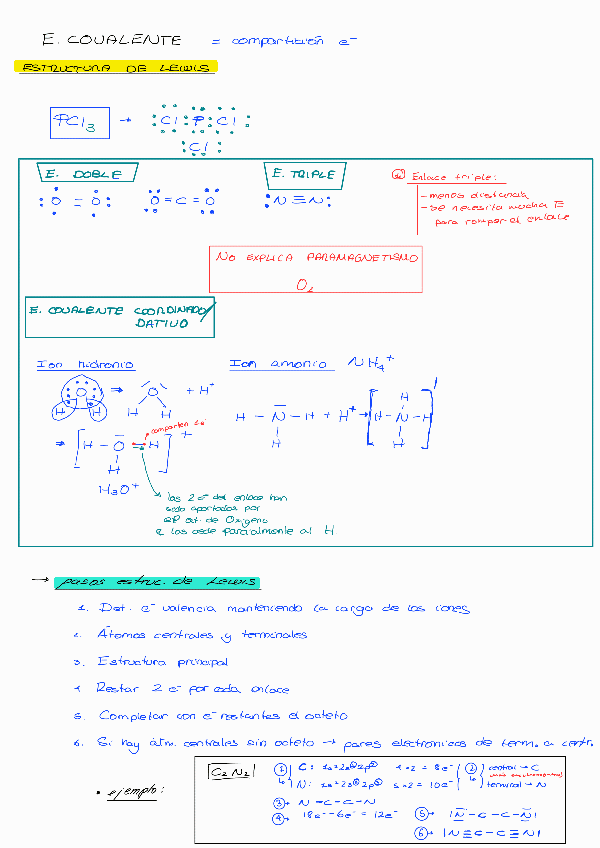 E. COVALENTE = compartición e⁻
ESTRUCTURA DE LEWIS
PCl₃ → :Cl:P:Cl:
:Cl:
E. DOBLE
E. TRIPLE
:O=O: O=C=O
:N≡N:
Enlace triple:
- menos distancia
- se necesita mucha E
para romper el enlace
NO EXPLICA PARAMAGNETISMO
O₂
E. COVALENTE COORDINADO/
DATIVO
Ion hidronio
Ion amonio NH₄⁺
O
H H
⇒ O + H⁺
H H
H-N-H + H⁺ → [H-N-H]
H
H
H
comparten
⇒ [H-O=H]⁺
H
H₃O⁺
los 2 e⁻ del enlace han
sido aportados por
el at. de Oxígeno
q los cede parcialmente al H.
→ pasos estruc. de Lewis
1. Det. e⁻ valencia manteniendo la carga de los iones
2. Átomos centrales y terminales
3. Estructura principal
4. Restar 2 e⁻ por cada enlace
5. Completar con e⁻ restantes el octeto
6. Si hay átm. centrales sin octeto → pares electrónicos de term. a centr.
• ejemplo:
C₂N₂
① C: 1s²2s²2p² 4·2 = 8e⁻
N: 1s²2s²2p³ 5·2 = 10e⁻
② central → C
terminal → N
③→ N-C-C-N
④→ 18e⁻-6e⁻ = 12e⁻
⑤→ |N-C-C-N|
⑥→ |N≡C-C≡N|